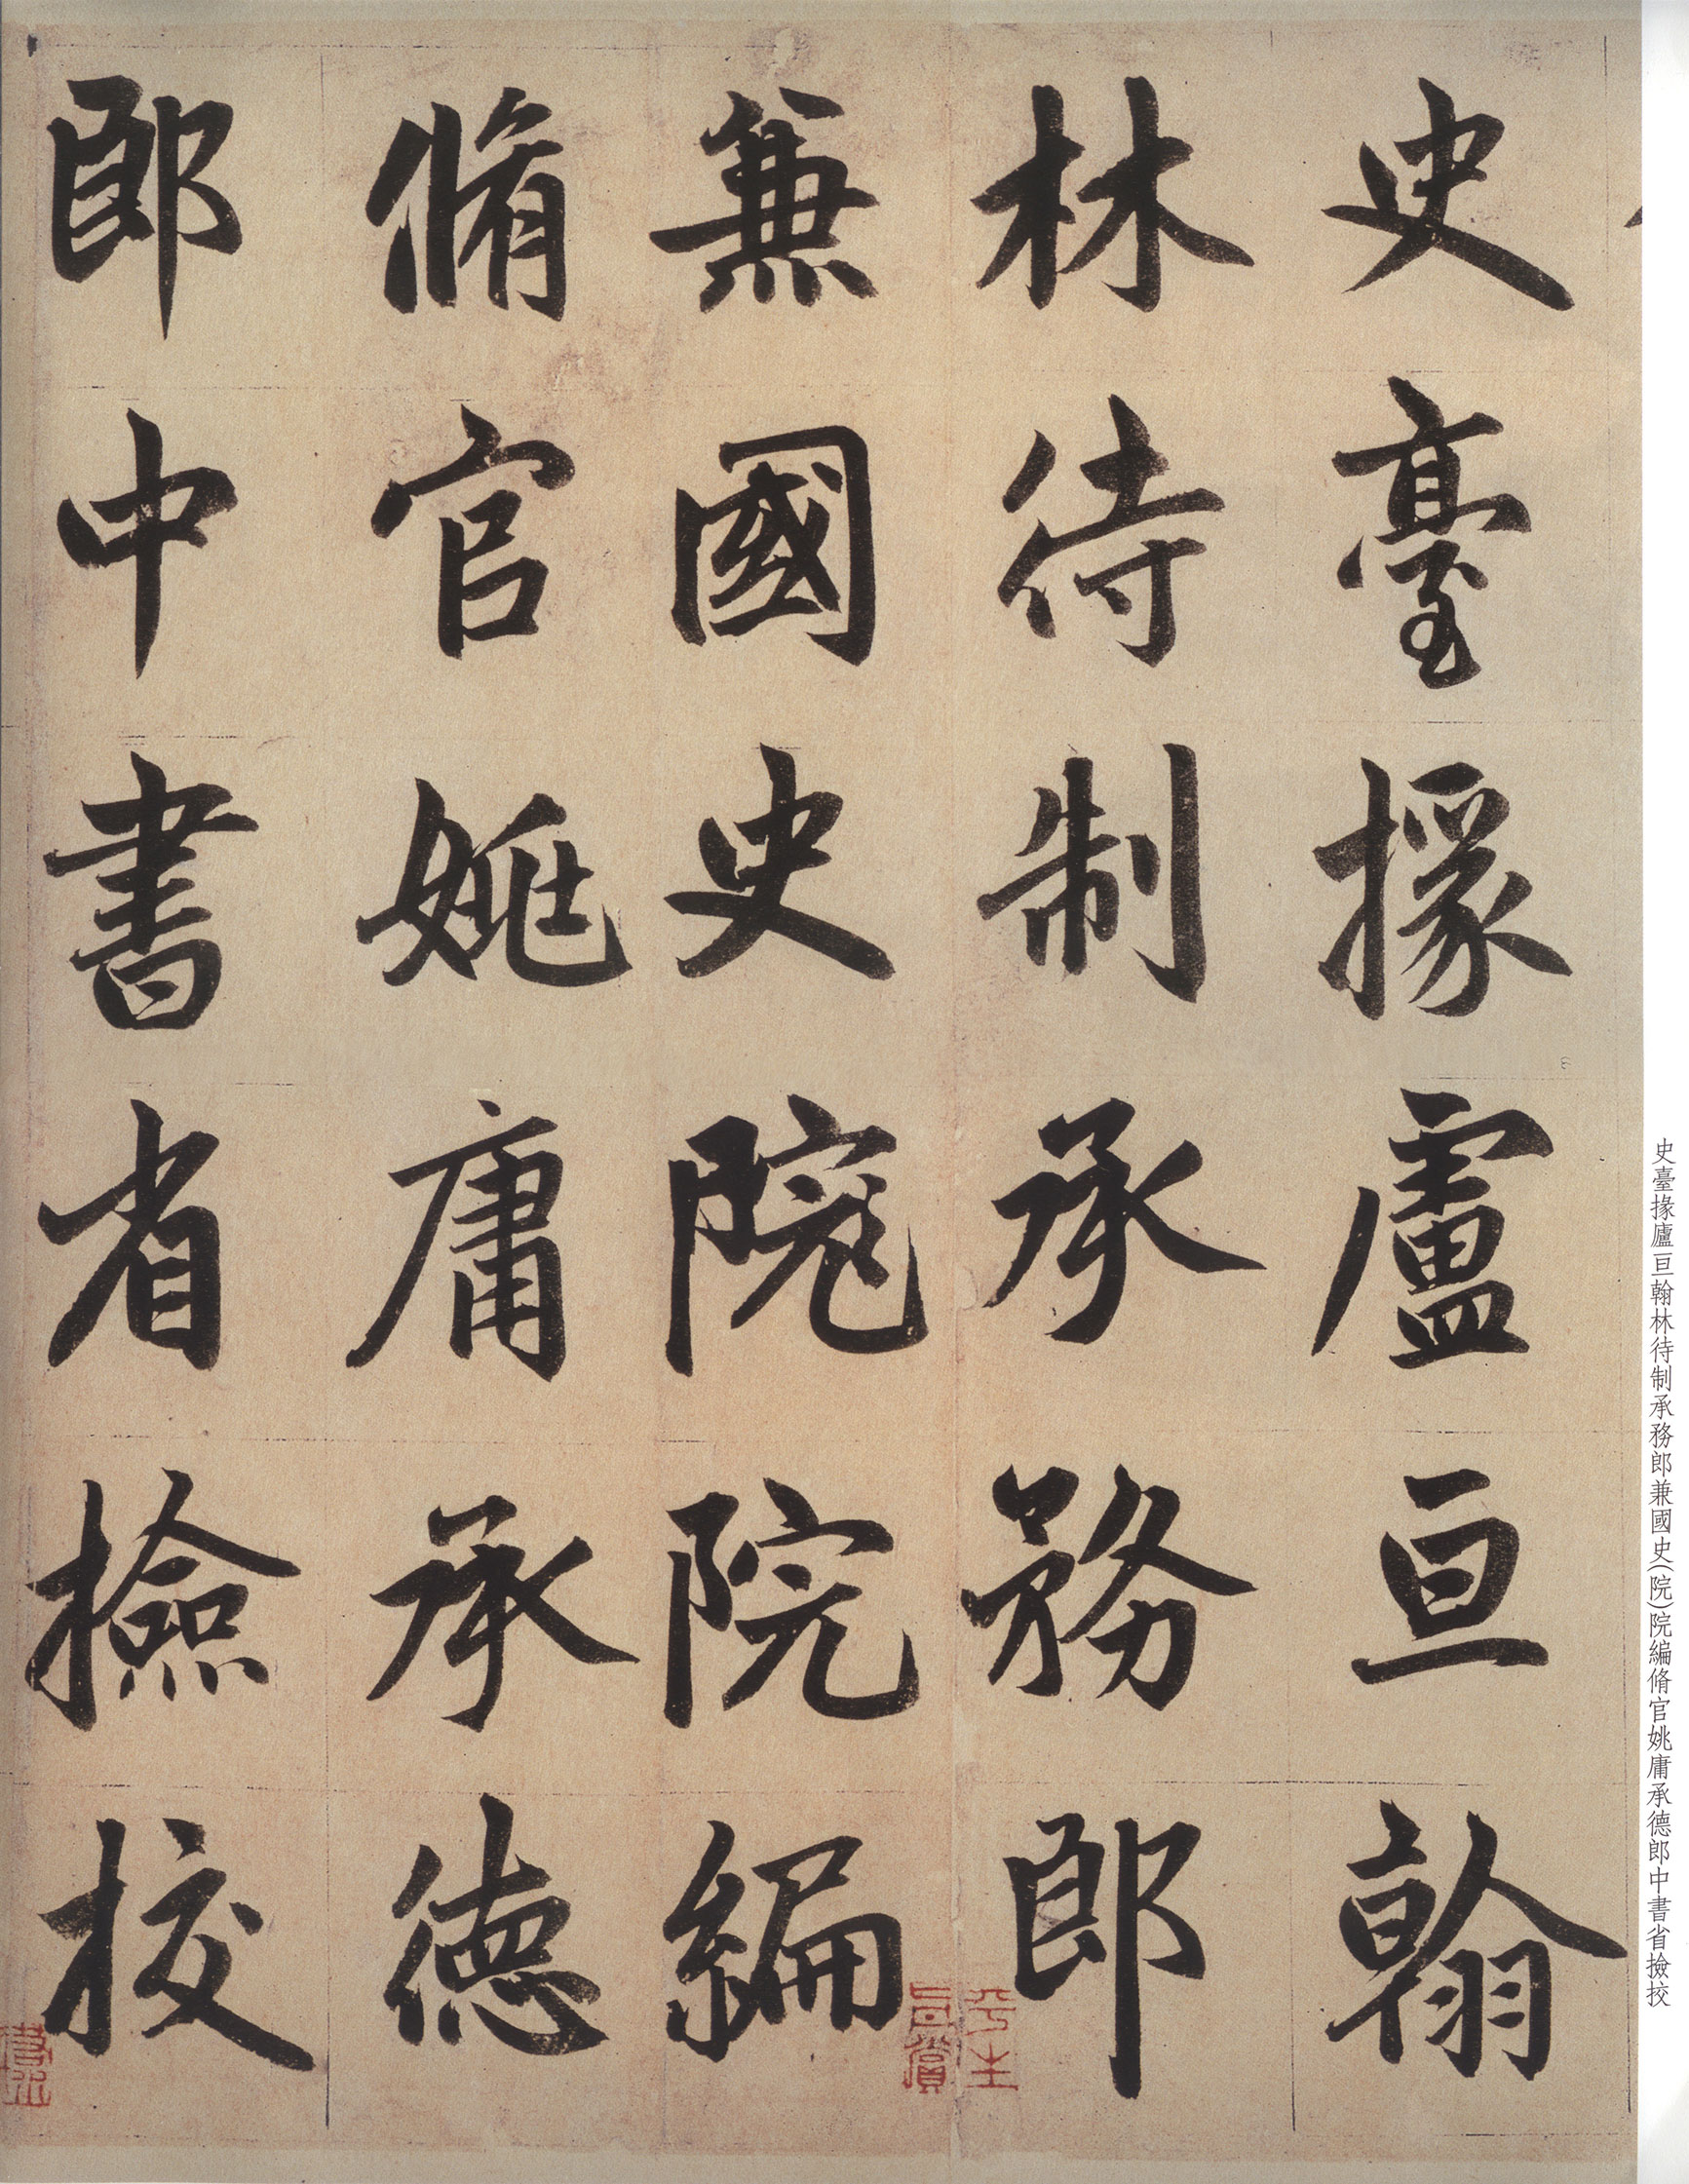 史臺掾盧亘翰
林待制承務郎
兼國史院院編
脩官姚庸承德
郎中書省撿挍
史臺掾廬亘翰林待制承務郎兼國史(院)院編脩官姚庸承德郎中書省撿挍
平生真賞